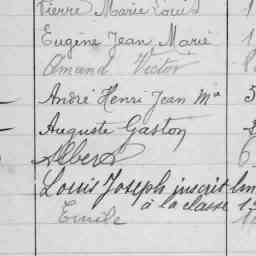 Pierre Marie Louis
Eugène Jean Marie
Amand Victor
André Henri Jean Mie
Auguste Gaston
Albert
Louis Joseph inscrit
à la classe
Emile